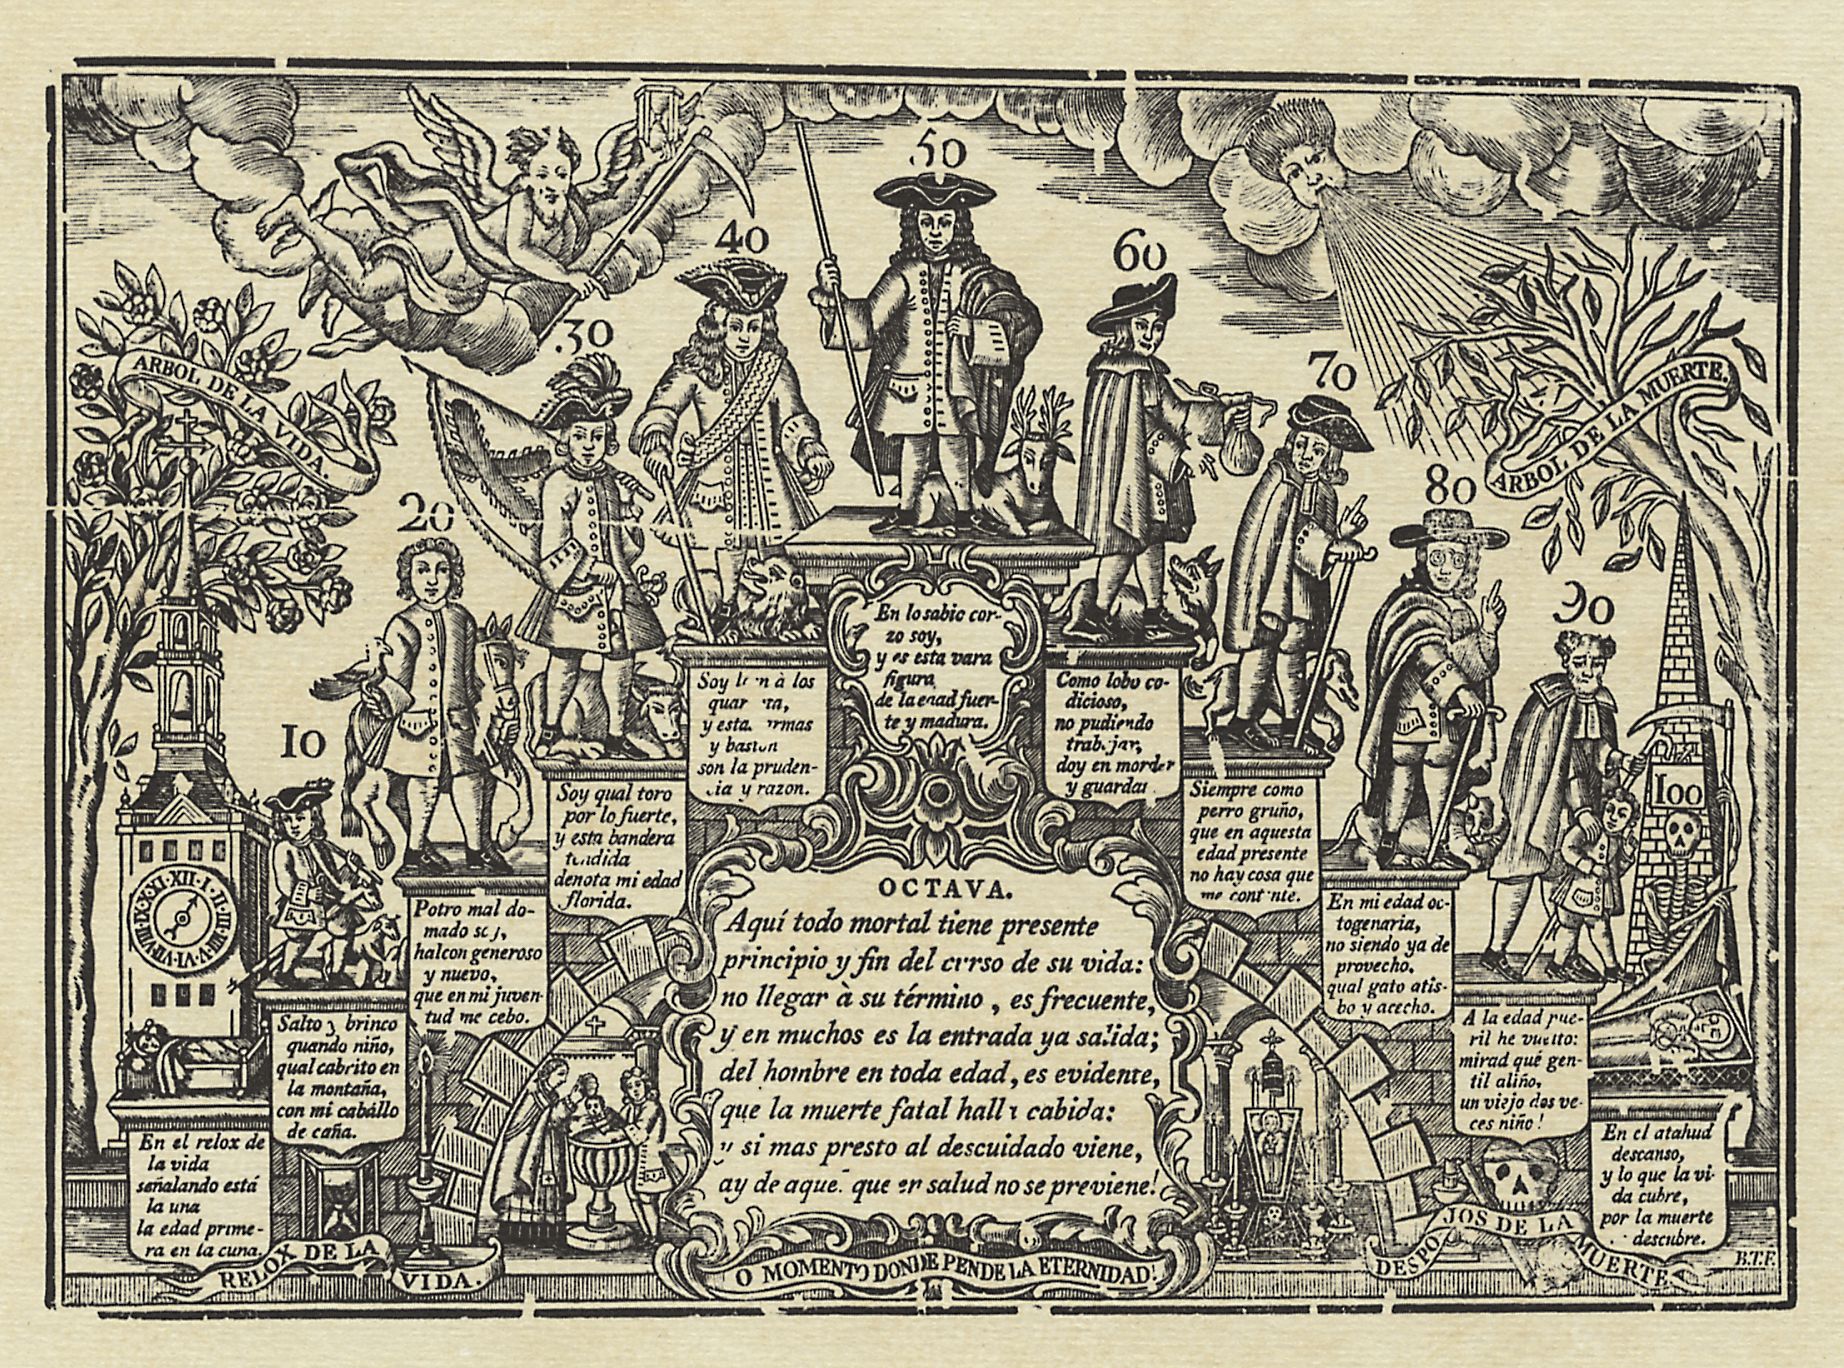 50
40
60
30
70
ARBOL DE LA VIDA.
ARBOL DE LA MUERTE.
20
80
90
10
100
XII·I·II·III·IV·V·VI·VII·VIII·IX·X·XI
En el relox de
la vida
señalando está
la una
la edad prime-
ra en la cuna.
Salto y brinco
quando niño,
qual cabrito en
la montaña,
con mi caballo
de caña.
Potro mal do-
mado soy,
halcon generoso
y nuevo,
que en mi juven-
tud me cebo.
Soy qual toro
por lo fuerte,
y esta bandera
tendida
denota mi edad
florida.
Soy leon à los
quarenta,
y estas armas
y baston
son la pruden-
cia y razon.
En lo sabio cor-
zo soy,
y es esta vara
figura
de la edad fuer-
te y madura.
Como lobo co-
dicioso,
no pudiendo
trabajar,
doy en morder
y guardar
Siempre como
perro gruño,
que en aquesta
edad presente
no hay cosa que
me contente.
En mi edad oc-
togenaria,
no siendo ya de
provecho,
qual gato atis-
bo y acecho.
A la edad pue-
ril he vuelto:
mirad qué gen-
til aliño,
un viejo dos ve-
ces niño!
En el atahud
descanso,
y lo que la vi-
da cubre,
por la muerte
descubre.
OCTAVA.
Aquí todo mortal tiene presente
principio y fin del curso de su vida:
no llegar à su término, es frecuente,
y en muchos es la entrada ya salida;
del hombre en toda edad, es evidente,
que la muerte fatal halla cabida:
y si mas presto al descuidado viene,
ay de aquel que en salud no se previene!
RELOX DE LA VIDA.
O MOMENTO DONDE PENDE LA ETERNIDAD!
DESPOJOS DE LA MUERTE
B.T.F.